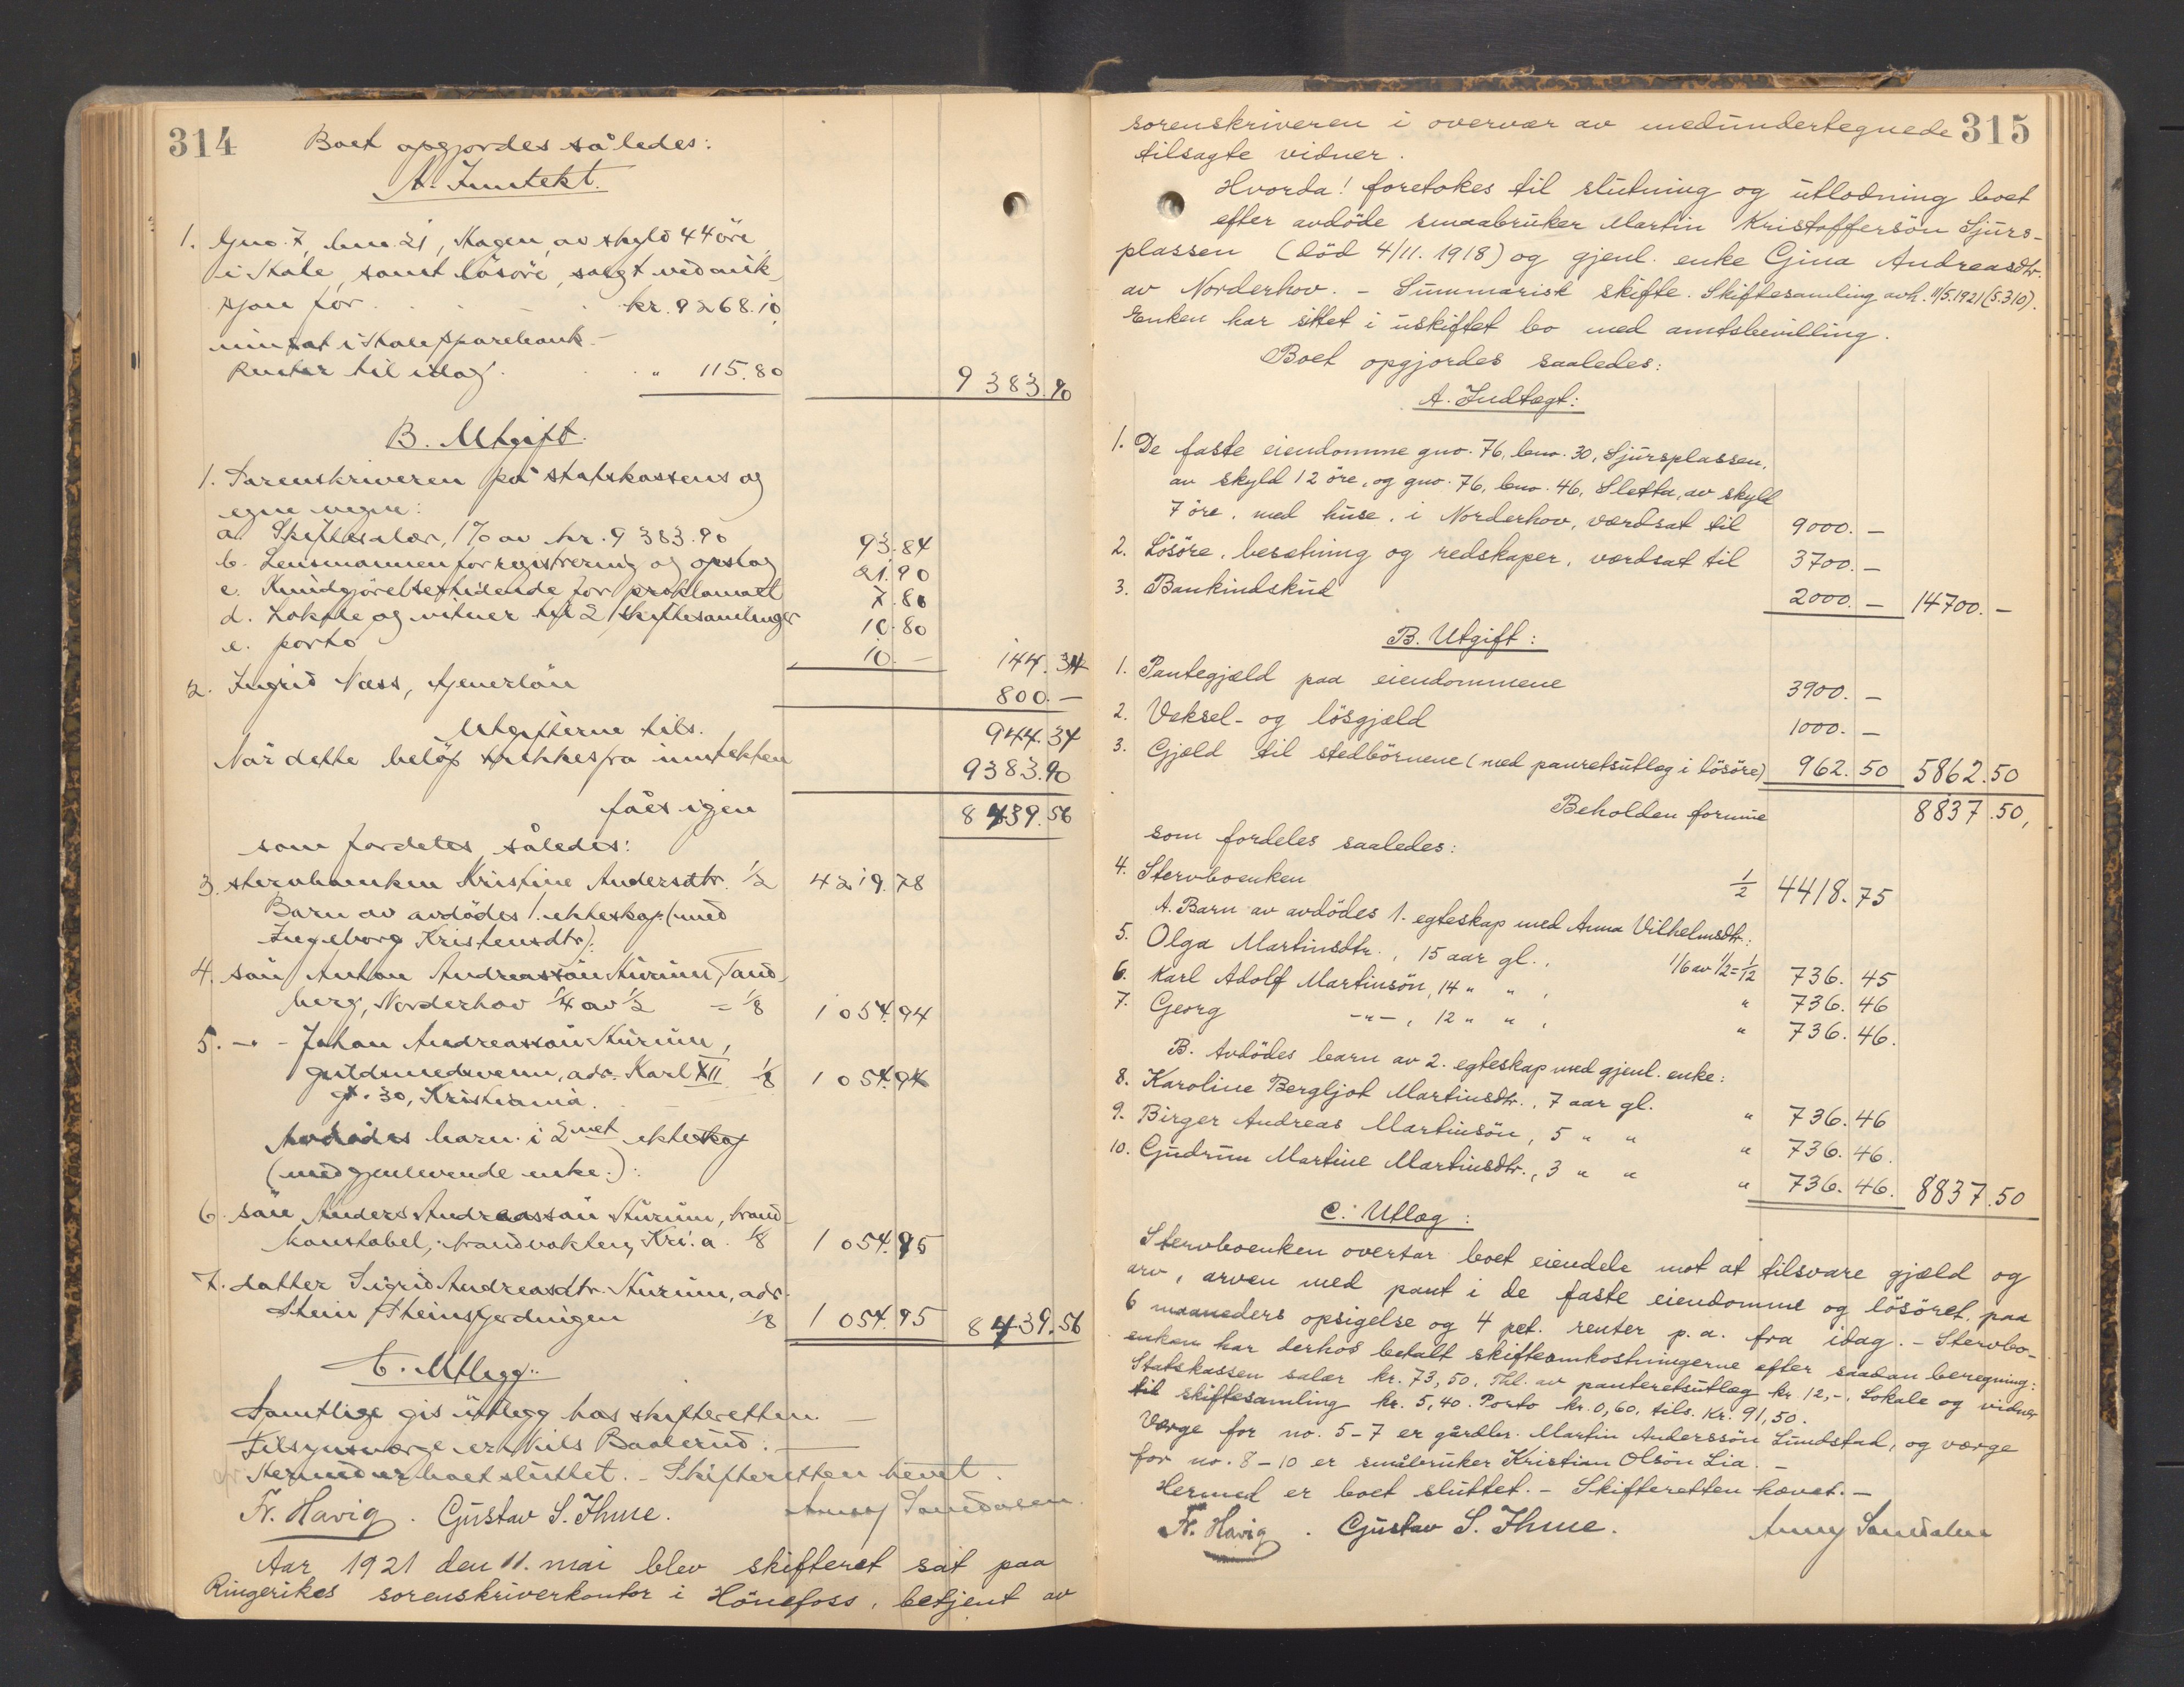 314
Boet opgjordes således:
A. Inntekt.
1. Gno. 7, bno. 21, Hagen, av skyld 44 öre
i Hole, samt lösöre, solgt ved auk-
sjon for . . . kr. 9268.10
innsat i Hole sparebank -
Renter til idag . . . " 115.80 9383.90
B. Utgift.
1. Sorenskriveren på statskassens og
egne vegne:
a. Skiftesalær, 1% av kr. 9383.90 93.84
b. Lensmannen for registrering og opslag 21.90
c. Kundgjörelsestidende for proklamaet 7.80
d. Lokale og vitner til 2 skiftesamlinger 10.80
e. porto 10.— 144.34
2. Ingrid Næss, tjenerlön 800.—
Utgifterne tils. 944.34
Når dette belöp trekkes fra inntekten 9383.90
fåes igjen 8439.56
som fordeles således:
3. stervboenken Kristine Andersdtr. 1/2 4219.78
Barn av avdödes 1. ekteskap (med
Ingeborg Kristensdtr):
4. sön Anton Andreassön Sturum, Tand-
berg, Norderhov 1/4 av 1/2 = 1/8 1054.94
5. -"- Johan Andreassön Sturum,
guldsmedsvenn, adr. Karl XII
gt. 30, Kristiania. 1/8 1054.94
Avdödes barn i 2net ekteskap
(med gjenlevende enke.):
6. sön Anders Andreassön Sturum, brand-
konstabel, brandvakten, Kr.a. 1/8 1054.95
7. datter Sigrid Andreasdtr. Sturum, adr.
Stein, Steinsfjerdingen 1/8 1054.95 8439.56
C. Utlegg:
Samtlige gis utlegg hos skifteretten. —
Tilsynsverge er Nils Baalerud. —
Hermed er boet sluttet. - Skifteretten hevet.
Fr. Havig. Gustav S. Thue. Anny Sandalen.
Aar 1921 den 11. mai blev skifteret sat paa
Ringerikes sorenskriverkontor i Hönefoss, betjent av
315
sorenskriveren i overvær av medundertegnede
tilsagte vidner.
Hvorda! foretokes til slutning og utlodning boet
efter avdöde smaabruker Martin Kristoffersön Sjurs-
plassen (död 4/11. 1918) og gjenl. enke Gina Andreasdtr.
av Norderhov. - Summarisk skifte. Skiftesamling avh. 11/5.1921 (S.310).
Enken har sittet i uskiftet bo med amtsbevilling.
Boet opgjordes saaledes:
A. Indtægt:
1. De faste eiendomme gno. 76, bno. 30, Sjursplassen,
av skyld 12 öre, og gno. 76, bno. 46, Sletta, av skyld
7 öre, med huse, i Norderhov, værdsat til 9000.—
2. Lösöre, besetning og redskaper, værdsat til 3700.—
3. Bankindskud 2000.— 14700.—
B. Utgift:
1. Pantegjæld paa eiendommene 3900.—
2. Veksel- og lösgjæld 1000.—
3. Gjæld til stedbörnene (med panretsutlæg i lösöre) 962.50 5862.50
Beholden formue 8837.50,
som fordeles saaledes:
4. Stervboenken 1/2 4418.75
A. Barn av avdödes 1. egteskap med Anna Vilhelmsdtr.:
5. Olga Martinsdtr., 15 aar gl., 1/6 av 1/2 = 1/12 736.45
6. Karl Adolf Martinsön, 14 " " , " 736.46
7. Georg -"-, 12 " " , " 736.46.
B. Avdödes barn av 2. egteskap med gjenl. enke:
8. Karoline Bergljot Martinsdtr., 7 aar gl. " 736.46
9. Birger Andreas Martinsön, 5 " " " 736.46.
10. Gudrun Martine Martinsdtr., 3 " " " 736.46. 8837.50
C. Utlæg:
Stervboenken overtar boet eiendele mot at tilsvare gjæld og
arv, arven med pant i de faste eiendomme og lösöret, paa
6 maaneders opsigelse og 4 pct. renter p.a. fra idag. - Stervbo-
enken har derhos betalt skifteomkostningerne efter saadan beregning:
Statskassen salær kr. 73,50. Thl. av panteretsutlæg kr. 12,-, Lokale og vidner
til skiftesamling kr. 5,40. Porto kr. 0,60, tils. kr. 91,50.
Værge for no. 5-7 er gårdbr. Martin Anderssön Lundstad, og værge
for no. 8-10 er småbruker Kristian Olsön Lia. —
Hermed er boet sluttet. - Skifteretten hævet. —
Fr. Havig. Gustav S. Thue. Anny Sandalen